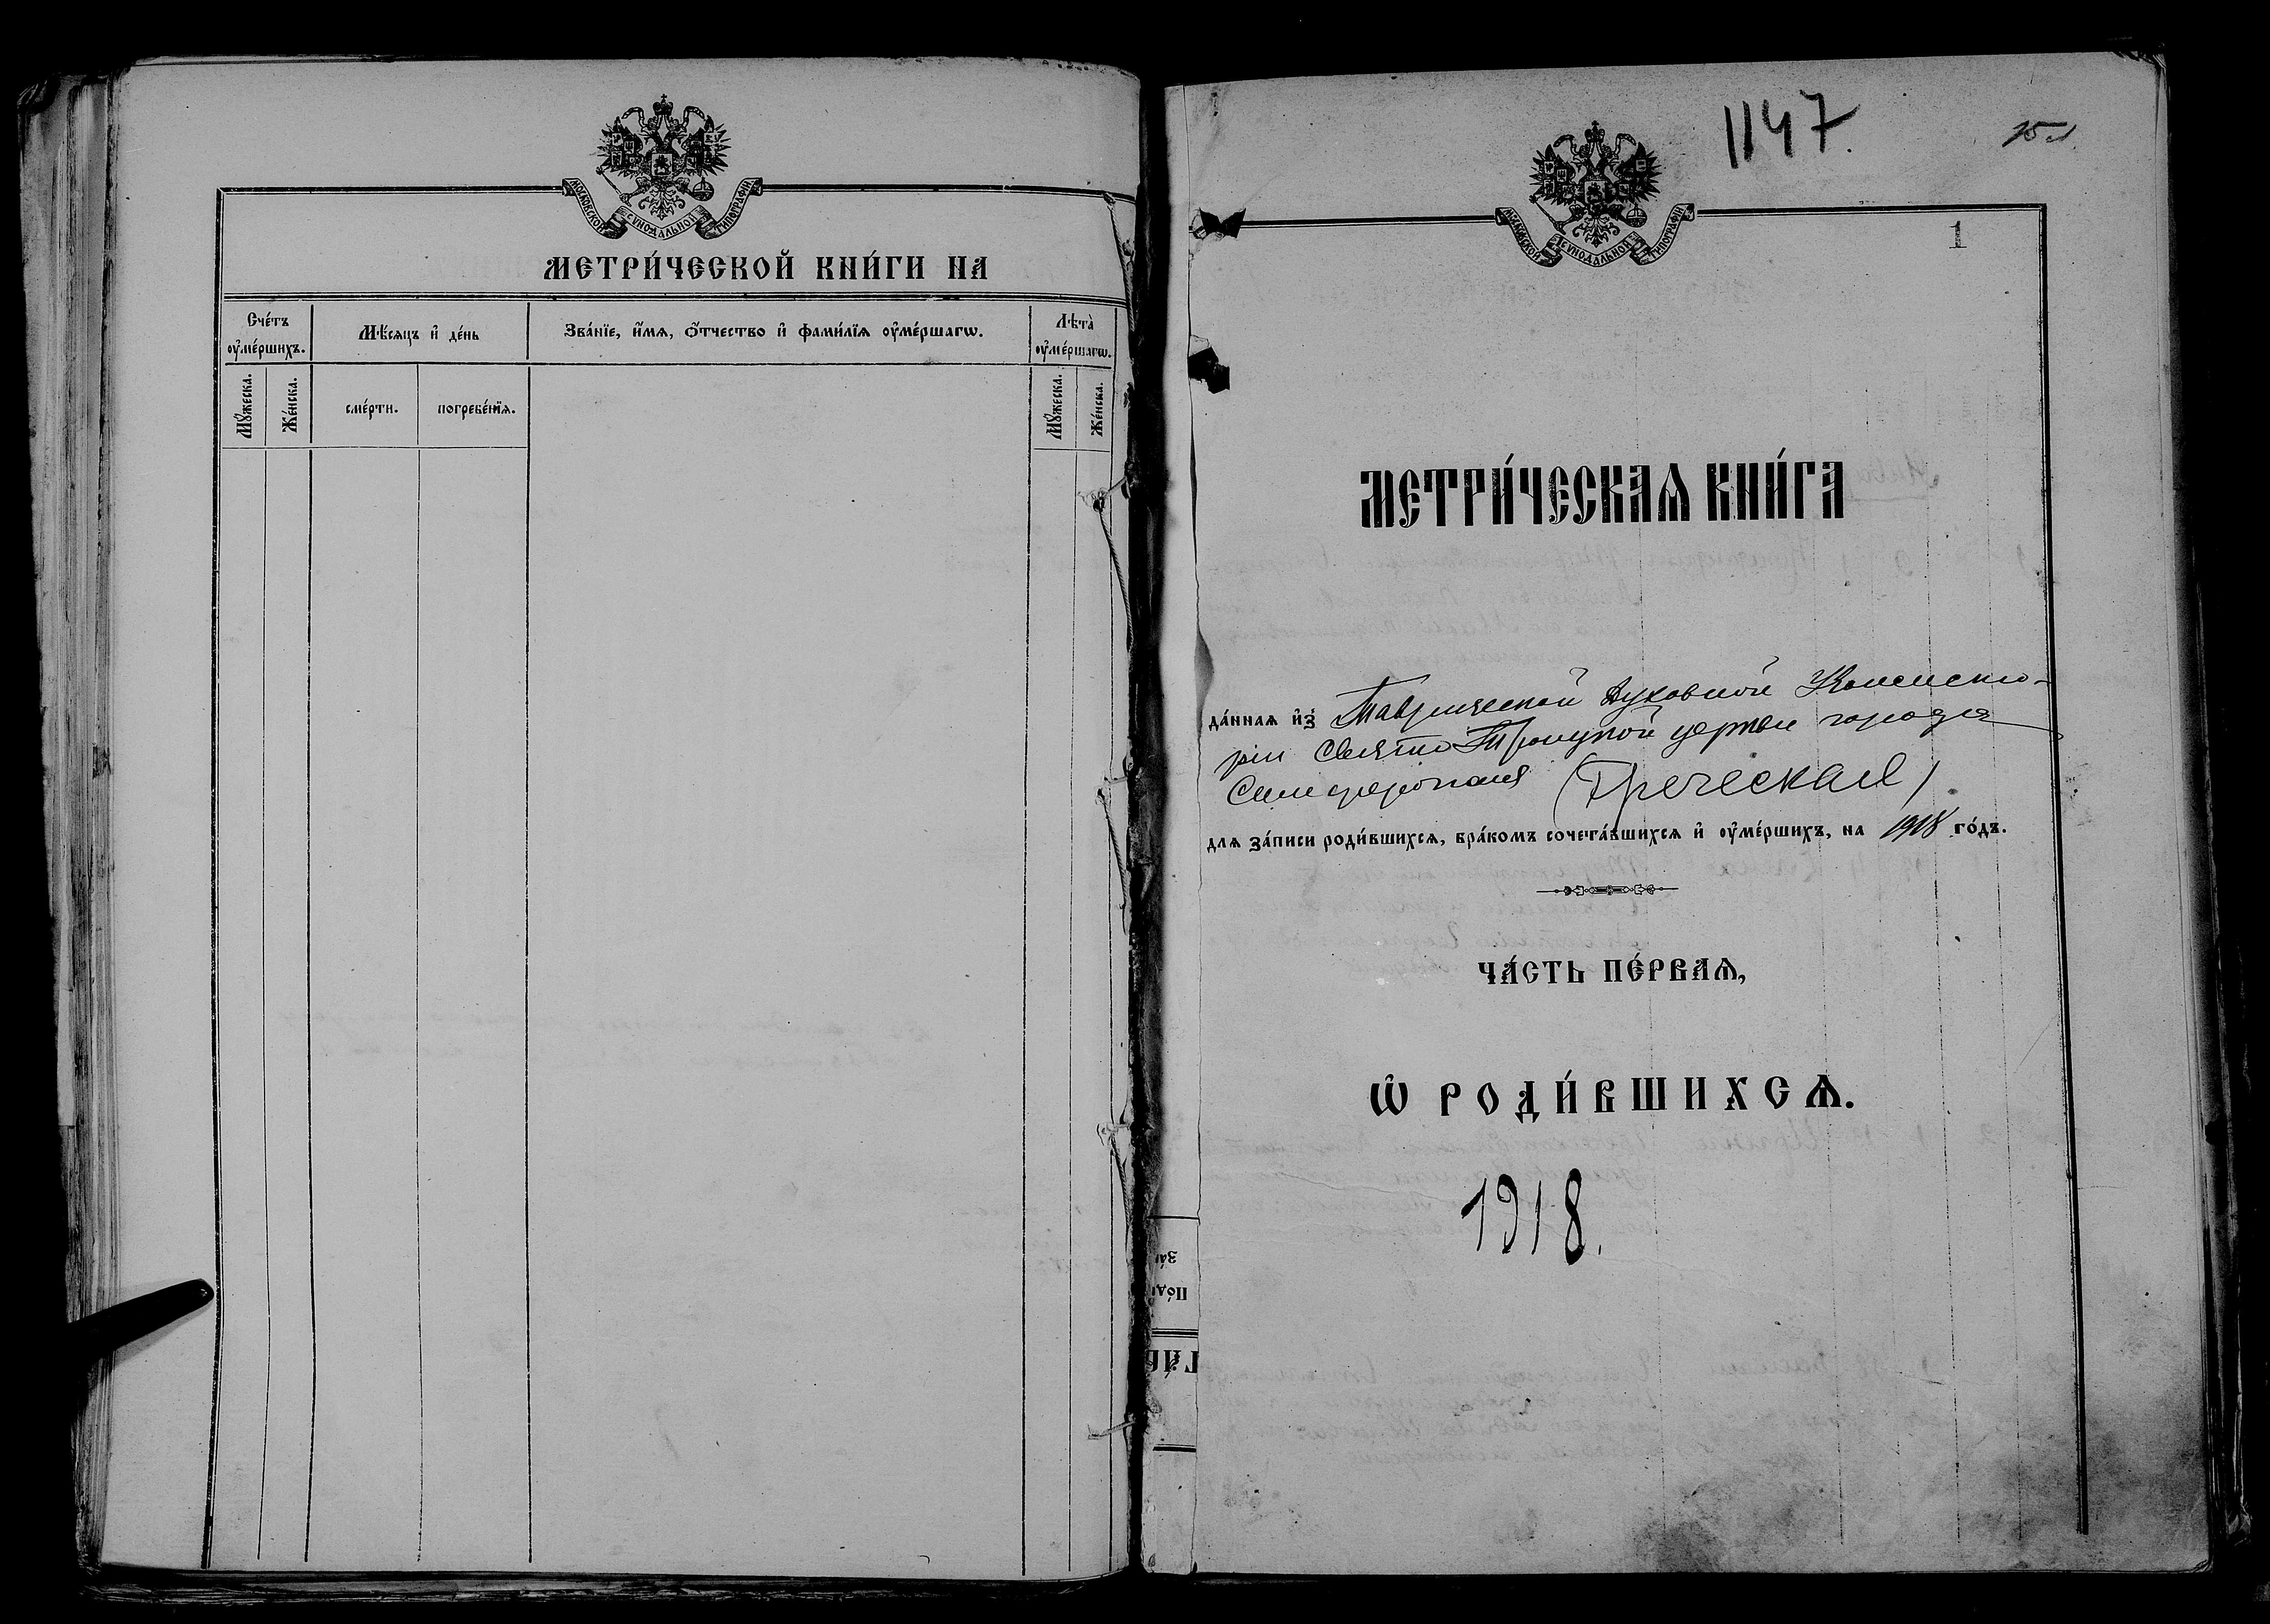 МОСКОВСКОЙ СѴНОДАЛЬНОЙ ТИПОГРАФІИ
МЕТРИ́ЧЕСКОЙ КНИ́ГИ НА
Сче́тъ ᲂу҆ме́ршихъ.
Мѣ́сяцъ и҆ де́нь
Зва́нїе, и҆́мѧ, ѻ҆́тчество и҆ фами́лїѧ ᲂу҆ме́ршагѡ.
Лѣ́та ᲂу҆ме́ршагѡ.
Мꙋ́жеска.
Же́нска.
сме́рти.
погребе́нїѧ.
Мꙋ́жеска.
Же́нска.
1147.
МОСКОВСКОЙ СѴНОДАЛЬНОЙ ТИПОГРАФІИ
1
МЕТРИ́ЧЕСКАѦ КНИ́ГА
да́ннаѧ и҆з̾ Таврической Духовной Консисто-
ріи Свято Троицкой церкви города
Симферополя (Греческая)
длѧ за́писи роди́вшихсѧ, бра́комъ сочета́вшихсѧ и҆ ᲂу҆ме́ршихъ, на 1918 го́дъ.
ЧА́СТЬ ПЕ́РВАѦ,
Ѡ҆ РОДИ́ВШИХСѦ.
1918.